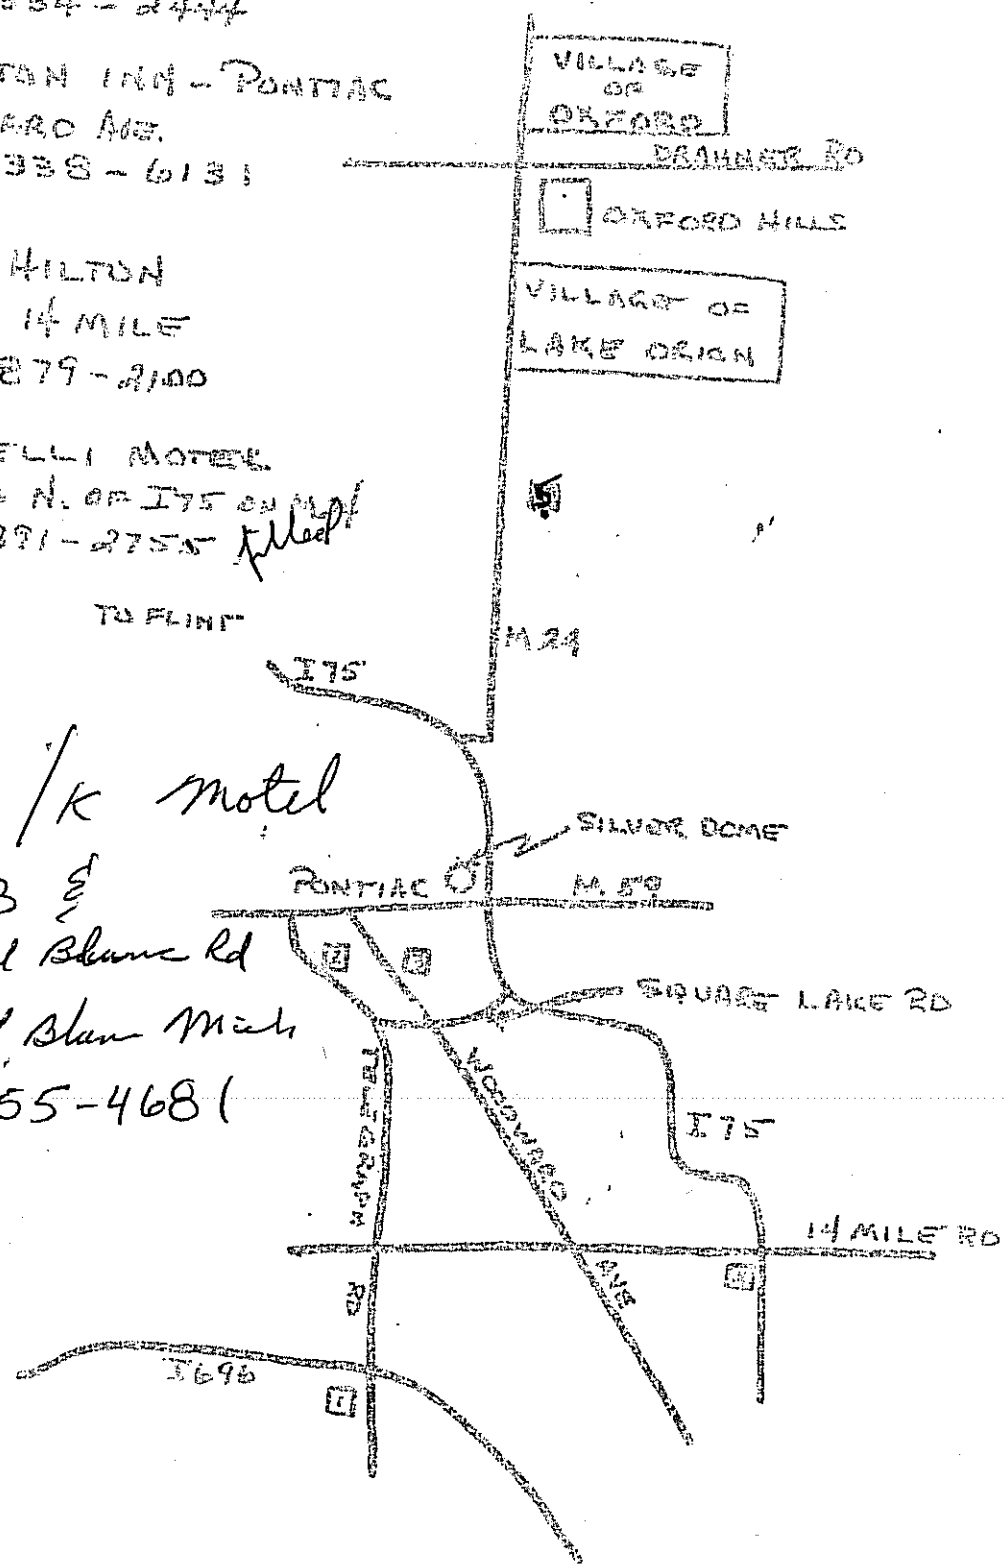 334-2444
TON INN - PONTIAC
ARD AVE.
338-6131
HILTON
14 MILE
879-2100
ELLI MOTEL
N. OF I75 ON M24
391-2755 filled
TO FLINT
/K Motel
3 &
Blanc Rd
Blanc Mich
55-4681
VILLAGE
OF
OXFORD
DRAHNER RD
OXFORD HILLS
VILLAGE OF
LAKE ORION
5
M24
I75
SILVER DOME
PONTIAC
M59
2
3
SQUARE LAKE RD
TELEGRAPH
RD
WOODWARD
AVE
I75
14 MILE RD
I696
1